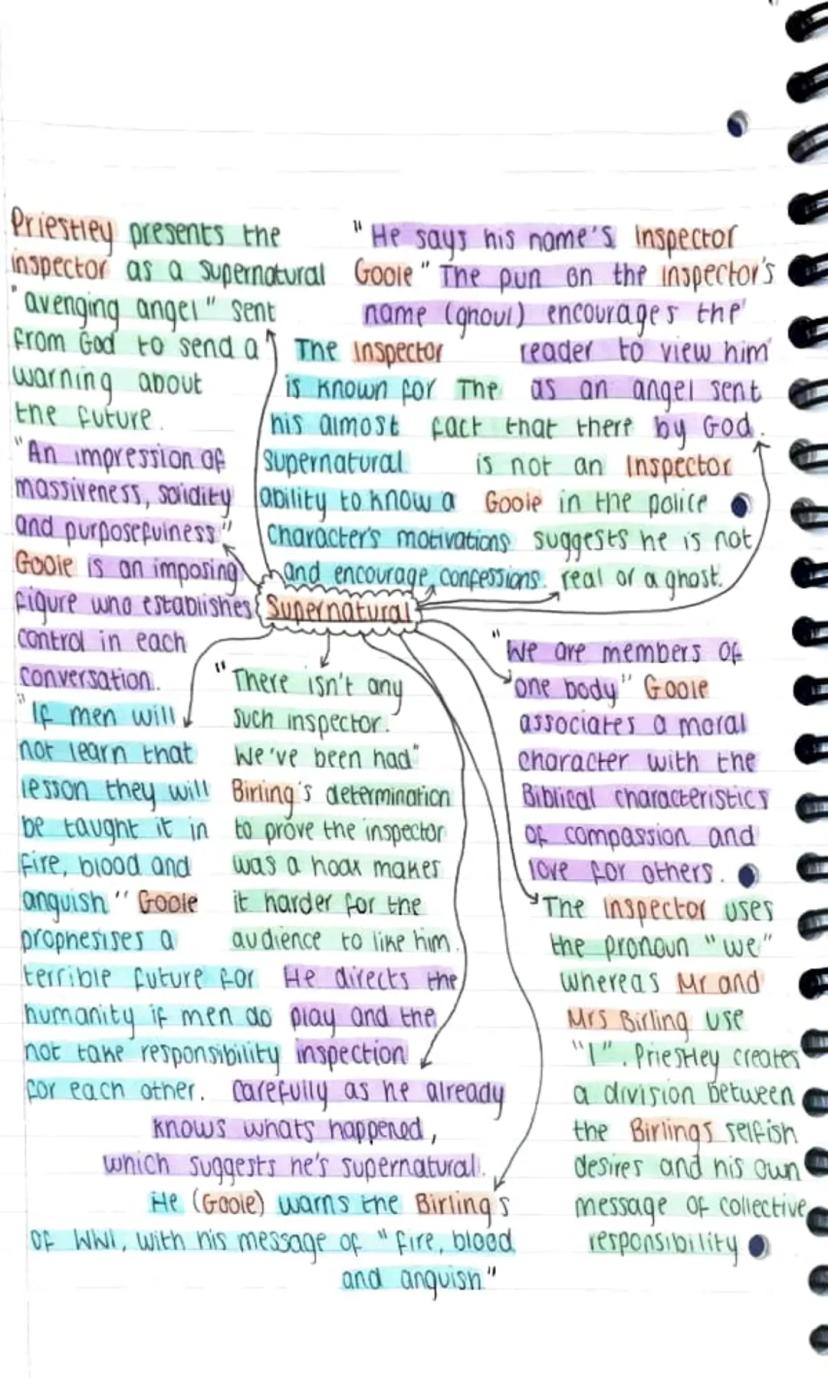 Priestley presents the
inspector as a supernatural
"avenging angel" sent
from God to send a
warning about
the future.
"He says his name's Inspector
Goole" The pun on the inspector's
name (ghoul) encourages the
reader to view him
as an angel sent
by God.
The Inspector
is known for
his almost
supernatural
ability to know a
character's motivations
and encourage confessions.
The
fact that there
is not an Inspector
Goole in the police
suggests he is not
real or a ghost.
"An impression of
massiveness, solidity
and purposefulness"
Goole is an imposing
figure who establishes
control in each
conversation.
Supernatural
"If men will
not learn that
lesson they will
be taught it in
fire, blood and
anguish" Goole
prophesises a
terrible future for
humanity if men do
not take responsibility
for each other.
"There isn't any
such inspector.
We've been had"
Birling's determination
to prove the inspector
was a hoax makes
it harder for the
audience to like him.
He directs the
play and the
inspection
carefully as he already
knows whats happened,
which suggests he's supernatural.
He (Goole) warns the Birlings
of WWI, with his message of "fire, blood
and anguish"
"We are members of
one body" Goole
associates a moral
character with the
Biblical characteristics
of compassion and
love for others.
The Inspector uses
the pronoun "we"
whereas Mr and
Mrs Birling use
"I". Priestley creates
a division between
the Birlings selfish
desires and his own
message of collective
responsibility